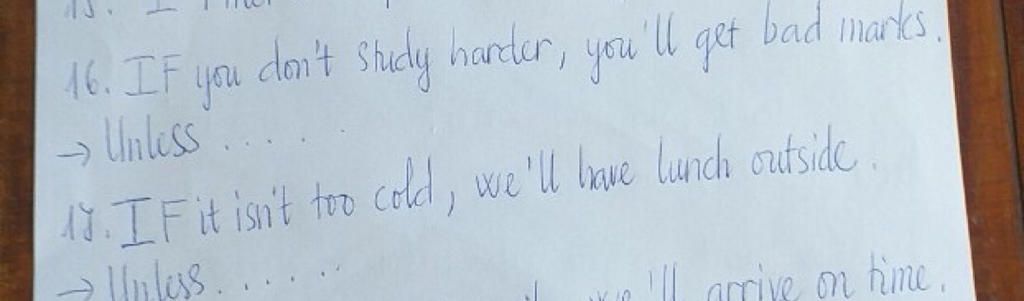 16. IF you don't study harder, you'll get bad marks.
→ Unless .....
17. IF it isn't too cold, we'll have lunch outside.
→ Unless......
we'll arrive on time.